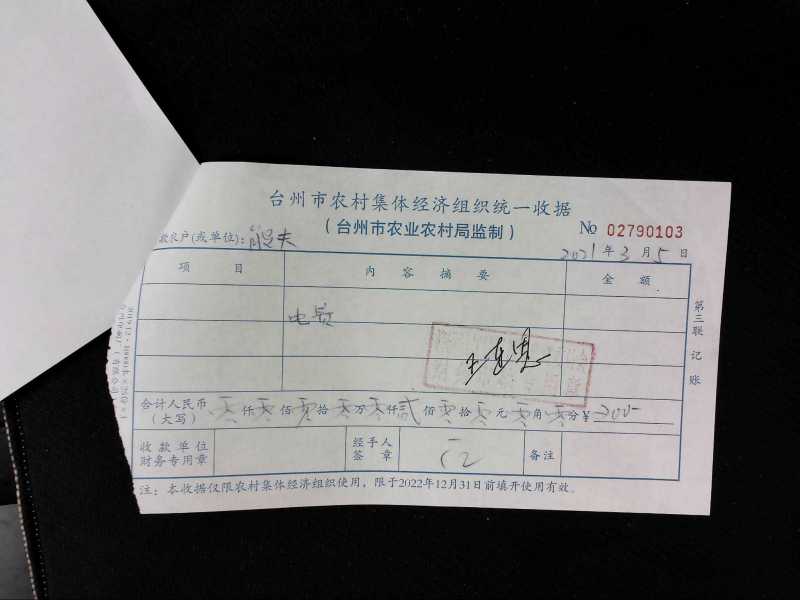 台州市农村集体经济组织统一收据
(台州市农业农村局监制)
№ 02790103
款农户(或单位):
2021年3月5日
项 目 内 容 摘 要 金 额
电费
合计人民币(大写) 零仟零佰零拾零万零仟贰佰零拾零元零角零分¥
收款单位财务专用章 经手人签章 备注
注:本收据仅限农村集体经济组织使用,限于2022年12月31日前填开使用有效。
第三联 记账